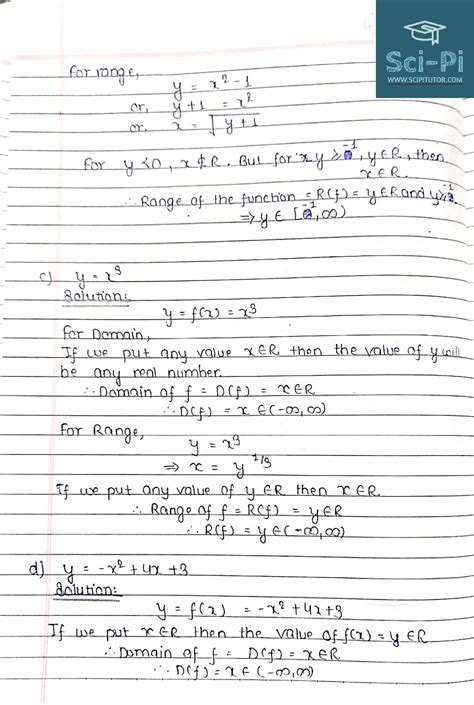 Sci-Pi
WWW.SCIPITUTOR.COM
For range,
y = x² - 1
or, y + 1 = x²
or, x = √y+1
For y < 0, x ∉ R. But for x y ≥ -1, y ∈ R, then
x ∈ R.
∴ Range of the function = R(f) = y ∈ R and y ≥ -1.
⇒ y ∈ [-1, ∞)
c) y = x³
Solution:
y = f(x) = x³
For Domain,
If we put any value x ∈ R, then the value of y will
be any real number.
∴ Domain of f = D(f) = x ∈ R
∴ D(f) = x ∈ (-∞, ∞)
For Range,
y = x³
⇒ x = y^1/3
If we put any value of y ∈ R then x ∈ R.
∴ Range of f = R(f) = y ∈ R
∴ R(f) = y ∈ (-∞, ∞)
d) y = -x² + 4x + 3
Solution:
y = f(x) = -x² + 4x + 3
If we put x ∈ R then the value of f(x) = y ∈ R
∴ Domain of f = D(f) = x ∈ R
∴ D(f) = x ∈ (-∞, ∞)